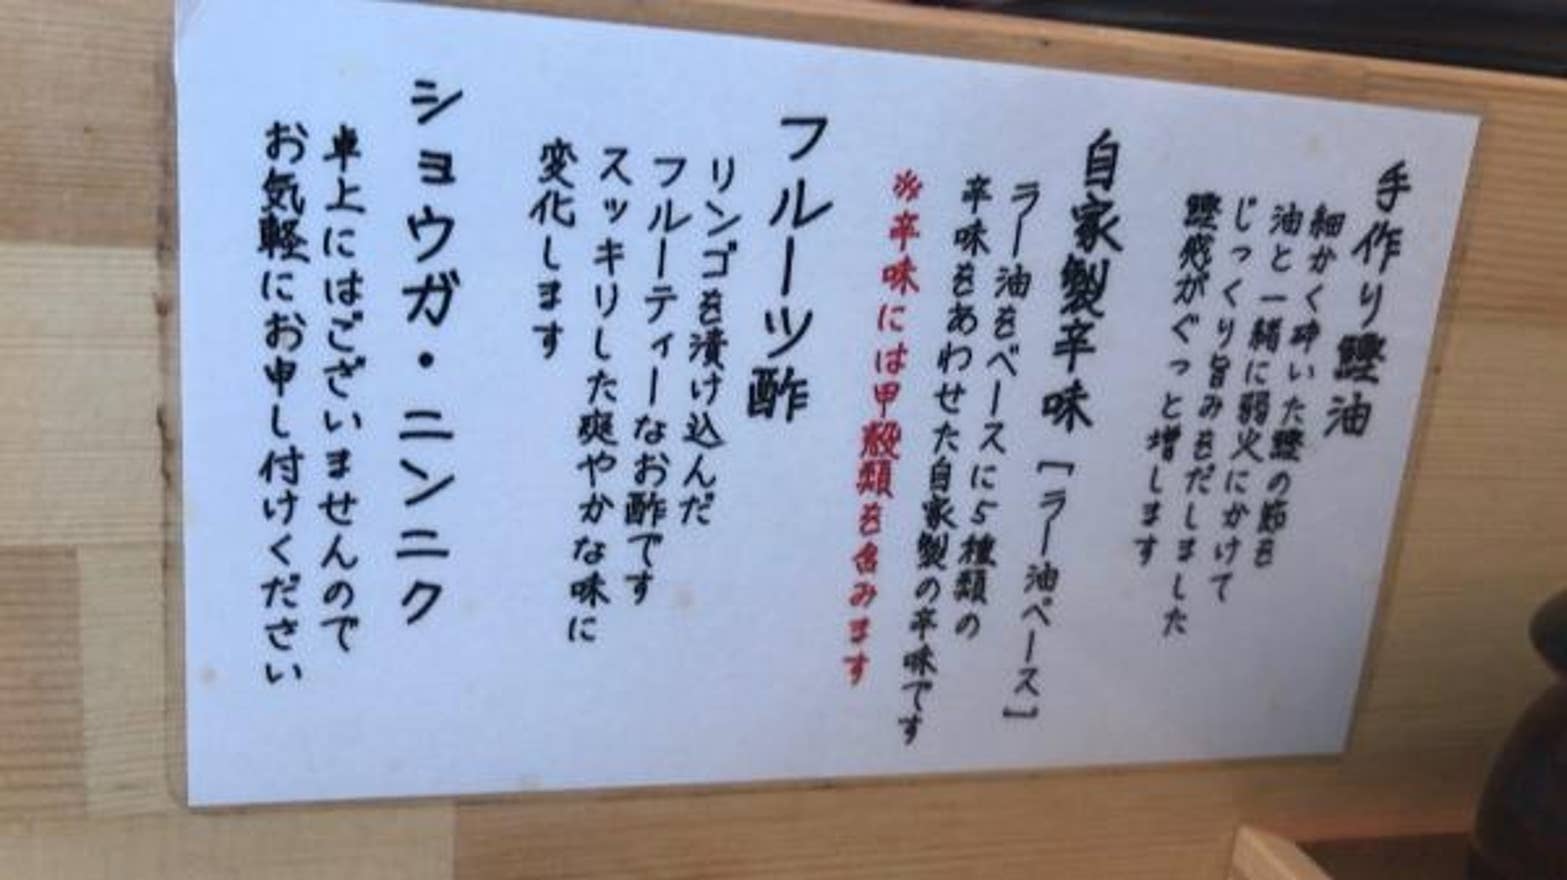 手作り鰹油
細かく砕いた鰹の節を
油と一緒に弱火にかけて
じっくり旨みをだしました
鰹感がぐっと増します
自家製辛味［ラー油ベース］
ラー油をベースに5種類の
辛味をあわせた自家製の辛味です
※辛味には甲殻類を含みます
フルーツ酢
リンゴを漬け込んだ
フルーティーなお酢です
スッキリした爽やかな味に
変化します
ショウガ・ニンニク
卓上にはございませんので
お気軽にお申し付けください